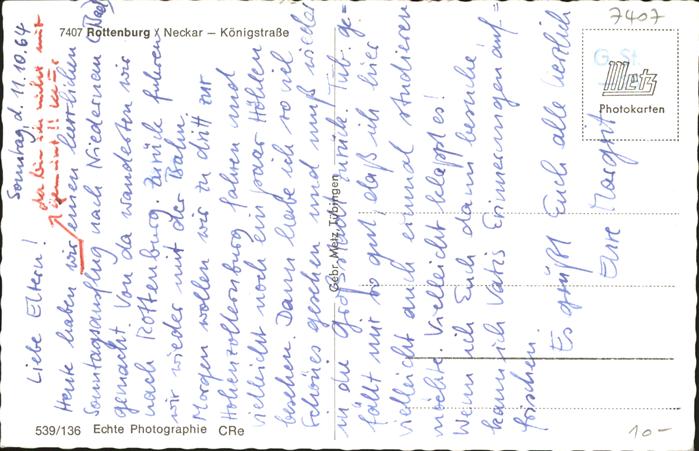 7407 Rottenburg / Neckar — Königstraße
7407
Metz
Photokarten
Gebr. Metz, Tübingen
539/136 Echte Photographie CRe
10.-
Sonntag, d. 11.10.64
Liebe Eltern!
da bin ich nicht mit
gemeint!!
Heute haben wir einen herrlichen
Sonntagsausflug nach Niedernau (Bad)
gemacht. Von da wanderten wir
nach Rottenburg. Zurück fuhren
wir wieder mit der Bahn.
Morgen wollen wir zu dritt zur
Hohenzollernburg fahren und
vielleicht noch ein paar Höhlen
besehen. Dann habe ich so viel
Schönes gesehen und muß wieder
in die Großstadt zurück. Tüb. ge-
fällt mir so gut, daß ich hier
vielleicht auch einmal studieren
möchte. Vielleicht klappt es!
Wenn ich Euch dann besuche
kann ich Vatis Erinnerungen auf-
frischen.
Es grüßt Euch alle herzlich
Eure Margrit